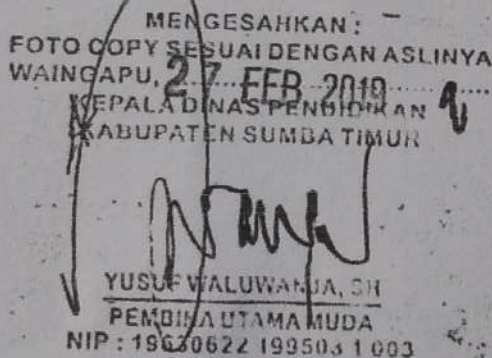 MENGESAHKAN :
FOTO COPY SESUAI DENGAN ASLINYA
WAINGAPU, 27 FEB 2019
KEPALA DINAS PENDIDIKAN
KABUPATEN SUMBA TIMUR
YUSUF WALUWANJA, SH
PEMBINA UTAMA MUDA
NIP : 19630622 199503 1 003